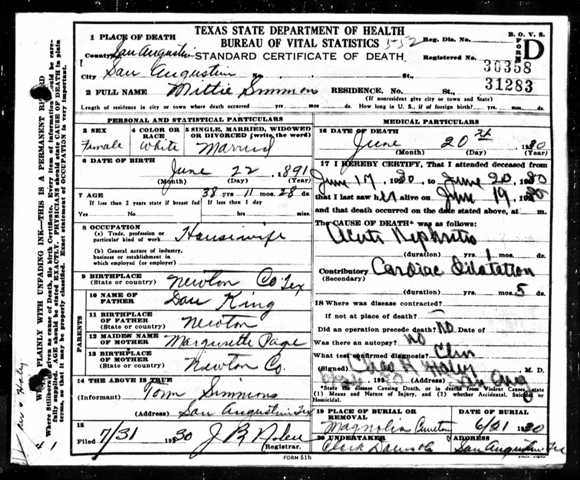 TEXAS STATE DEPARTMENT OF HEALTH
BUREAU OF VITAL STATISTICS
STANDARD CERTIFICATE OF DEATH
B. O. V. S.
FORM D
1 PLACE OF DEATH
County San Augustin
City San Augustin St.
Reg. Dis. No.
Registered No. 30358
31283
2 FULL NAME Mittie Simmons RESIDENCE. No. St.
(If nonresident give city or town and State)
Length of residence in city or town where death occurred yrs. mos. ds. How long in U. S., if of foreign birth? yrs. mos. ds.
PERSONAL AND STATISTICAL PARTICULARS
3 SEX 4 COLOR OR RACE 5 SINGLE, MARRIED, WIDOWED OR DIVORCED (write the word)
Female White Married
6 DATE OF BIRTH
June 22 1891
(Month) (Day) (Year)
7 AGE 38 yrs 11 mos 28 ds.
If less than 2 years state if breast fed If less than 1 day
8 OCCUPATION
(a) Trade, profession or particular kind of work Housewife
(b) General nature of industry, business or establishment in which employed or (employer)
9 BIRTHPLACE
(State or country) Newton Co Tex
PARENTS
10 NAME OF FATHER Dan King
11 BIRTHPLACE OF FATHER
(State or country) Newton
12 MAIDEN NAME OF MOTHER Margurette Page
13 BIRTHPLACE OF MOTHER
(State or country) Newton Co.
14 THE ABOVE IS TRUE
(Informant) Tom Simmons
(Address) San Augustin Tex
15
Filed 7/31 1930 J B Nolen
Registrar.
FORM 51b
MEDICAL PARTICULARS
16 DATE OF DEATH
June 20th 1930
(Month) (Day) (Year)
17 I HEREBY CERTIFY, That I attended deceased from
June 17, 1930 to June 20, 1930
that I last saw her alive on June 19, 1930
and that death occurred on the date stated above, at m.
The CAUSE OF DEATH* was as follows:
Acute Nephritis
(duration) yrs. mos. ds.
Contributory Cardiac Dilatation
(Secondary)
(duration) yrs. mos. 5 ds.
18 Where was disease contracted?
if not at place of death?
Did an operation precede death? No. Date of
Was there an autopsy? no
What test confirmed diagnosis? Clin
(Signed) Chas H Haley M. D.
1930 (Address) San Aug
*State the Disease Causing Death, or in deaths from Violent Causes, state (1) Means and Nature of Injury, and (2) whether Accidental, Suicidal or Homicidal.
19 PLACE OF BURIAL OR REMOVAL DATE OF BURIAL
Magnolia 6/21 1930
20 UNDERTAKER ADDRESS
San Augustin Tex